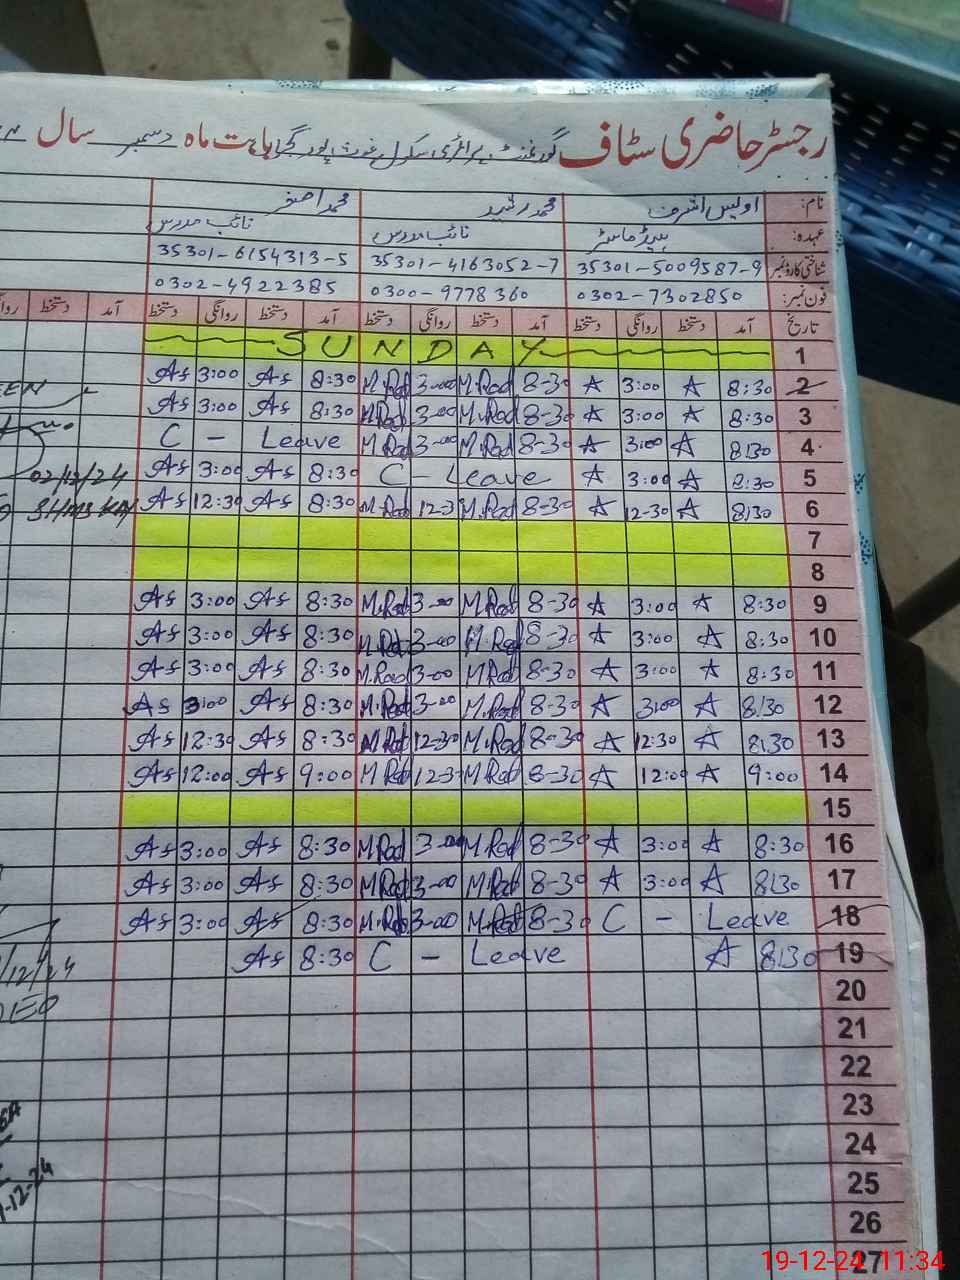 رجسٹر حاضری سٹاف گورنمنٹ پرائمری سکول غوث پور گجراں بابت ماہ دسمبر سال
نام: اویس اشرف محمد رشید محمد اصغر
عہدہ: ہیڈ ماسٹر نائب مدرس نائب مدرس
شناختی کارڈ نمبر 35301-5009587-9 35301-4163052-7 35301-6154313-5
فون نمبر: 0302-7302850 0300-9778360 0302-4922385
تاریخ آمد دستخط روانگی دستخط آمد دستخط روانگی دستخط آمد دستخط روانگی دستخط آمد دستخط
SUNDAY 1
As 3:00 As 8:30 M.Rad 3-00 M.Rad 8-30 A 3:00 A 8:30 2
As 3:00 As 8:30 M.Rad 3-00 M.Rad 8-30 A 3:00 A 8:30 3
C - Leave M.Rad 3-00 M.Rad 8-30 A 3:00 A 8:30 4
02/12/24 As 3:00 As 8:30 C Leave A 3:00 A 8:30 5
As 12:30 As 8:30 M.Rad 12-3 M.Rad 8-30 A 12-30 A 8:30 6
7
8
As 3:00 As 8:30 M.Rad 3-00 M.Rad 8-30 A 3:00 A 8:30 9
As 3:00 As 8:30 M.Rad 3-00 M.Rad 8-30 A 3:00 A 8:30 10
As 3:00 As 8:30 M.Rad 3-00 M.Rad 8-30 A 3:00 A 8:30 11
As 3:00 As 8:30 M.Rad 3-00 M.Rad 8-30 A 3:00 A 8:30 12
As 12:30 As 8:30 M.Rad 12-30 M.Rad 8-30 A 12:30 A 8:30 13
As 12:00 As 9:00 M.Rad 12-3 M.Rad 8-30 A 12:00 A 9:00 14
15
As 3:00 As 8:30 M.Rad 3-00 M.Rad 8-30 A 3:00 A 8:30 16
As 3:00 As 8:30 M.Rad 3-00 M.Rad 8-30 A 3:00 A 8:30 17
As 3:00 As 8:30 M.Rad 3-00 M.Rad 8-30 C - Leave 18
/12/24 As 8:30 C - Leave A 8:30 19
20
21
22
23
24
25
26
27
19-12-24 11:34